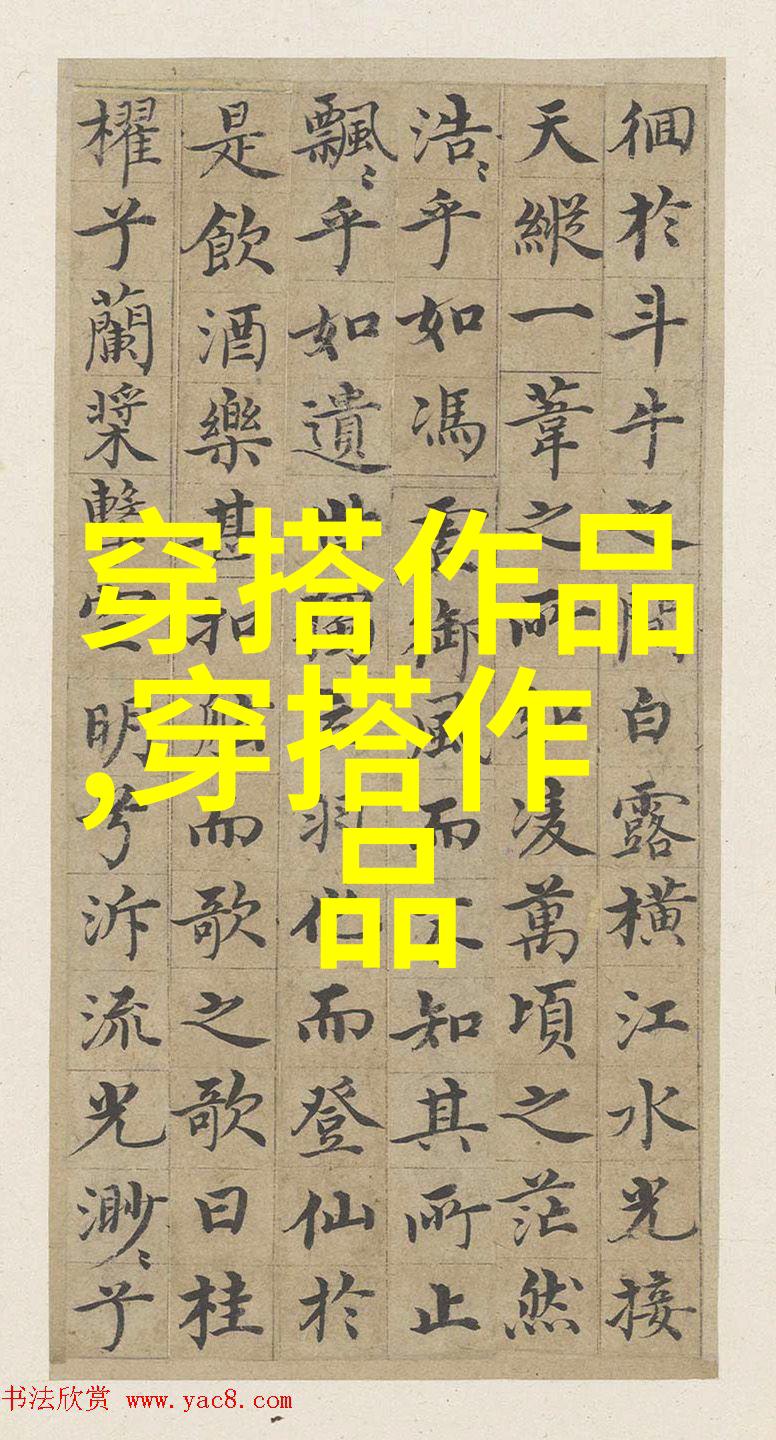 徊於斗牛之間白露橫江水光接
天縱一葦之所如凌萬頃之茫然
浩〻乎如馮虛御風而不知其所止
飄〻乎如遺世獨羽化而登仙於
是飲酒樂甚扣而歌之歌曰桂
櫂兮蘭槳擊空明兮泝流光渺〻兮
穿搭作品
,穿搭作
品
书法欣赏 www.yac8.com